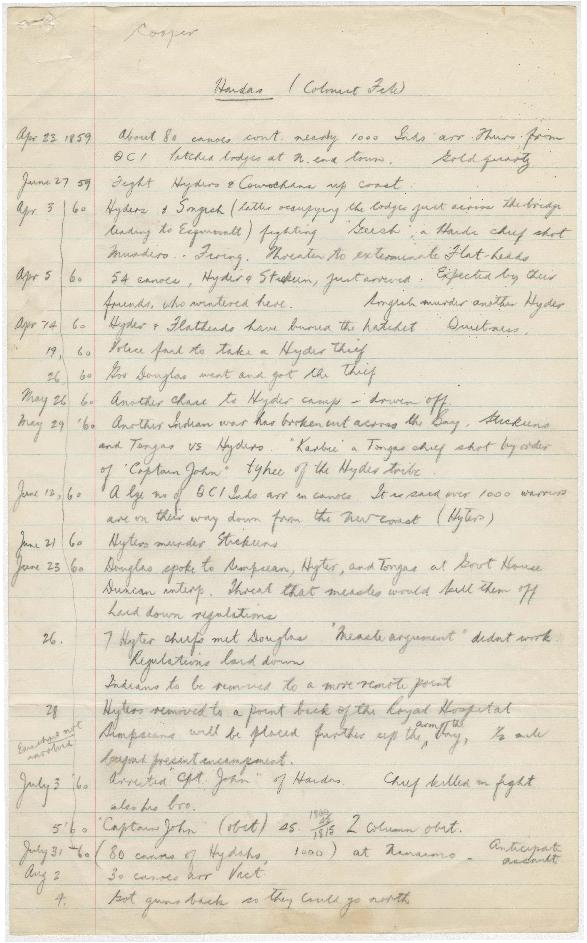 Cooper
Haidas (Colonist File)
Apr 23 1859 About 80 canoes cont. nearly 1000 Inds arr. Thurs. from
QCI Pitched lodges at N. end town. Gold quartz
June 27 59 Fight Hyders & Cowichans up coast.
Apr 3 60 Hyders & Songish (latter occupying the lodges just across the bridge
leading to Esquimalt) fighting "Geesh", a Haida chief shot
Murders. Firing. Threaten to exterminate Flat-heads
Apr 5 60 54 canoes, Hyder & Stickun, just arrived. Expected by their
friends, who wintered here. Songish murder another Hyder
Apr 14 60 Hyder & Flatheads have buried the hatchet Quietness.
19, 60 Police fail to take a Hyder thief
26 60 Gov Douglas went and got the thief
May 26 60 Another chase to Hyder camp – driven off.
May 29 '60 Another Indian war has broken out across the Bay. Stickeens
and Tongas vs Hyders. "Karbie" a Tongas chief shot by order
of "Captain John" tyhee of the Hyder tribe.
June 12, 60 A lge no of QCI Inds arr in canoes It is said over 1000 warriors
are on their way down from the New coast (Hyters)
June 21 60 Hyters murder Stickeens
June 23 60 Douglas spoke to Simpsean, Hyter, and Tongas at Govt House
Duncan interp. Threat that measles would kill them off
Laid down regulations
26. 7 Hyter chiefs met Douglas "Measle argument" didnt work.
Regulations laid down
Indians to be removed to a more remote point
28 Hyters removed to a point back of the Royal Hospital
Simpseans will be placed further up the arm of the Bay, 1/2 mile
beyond present encampment.
not
involved
July 3 '60 Arrested "Cpt. John" of Haidas. Chief killed in fight
also his bro.
5 '60 "Captain John" (obit) 2 column obit.
July 31 – 60 (80 canoes of Hydahs, 1000) at Nanaimo – Anticipate
assault
Aug 2 30 canoes arr Vict
4. Got guns back so they could go north